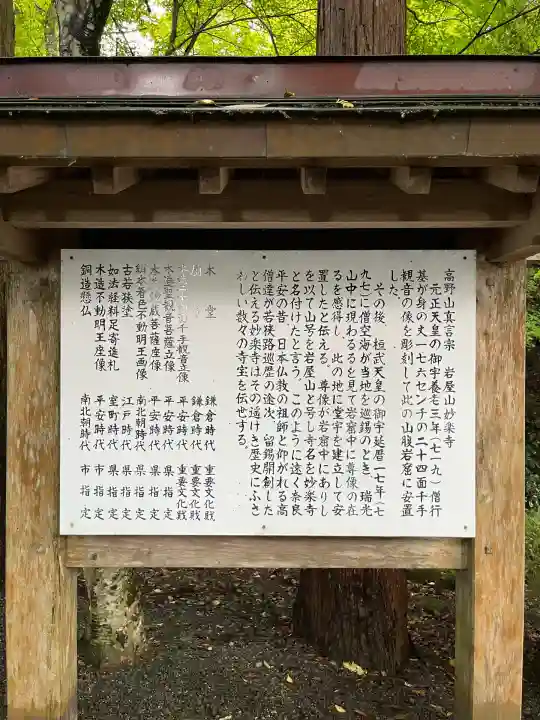 高野山真言宗　岩屋山妙楽寺
元正天皇の御宇養老三年(七一九)僧行
基が身の丈一七六センチの二十四面千手
観音の像を彫刻して此の山腹岩窟に安置
した。
その後、桓武天皇の御宇延暦一七年(七
九七)に僧空海が当地を巡錫のとき、瑞光
山中に現わるるを見て岩窟中に尊像の在
るを感得し、此の地に堂宇を建立して安
置したと伝える。尊像が岩窟中にありし
を以て山号を岩屋山と号し寺名を妙楽寺
と名付けたと言う。このように遠く奈良
平安の昔、日本仏教の祖師と仰がれる高
僧達が若狭路巡歴の途次、留錫開創した
と伝える妙楽寺はその遥けき歴史にふさ
わしい数々の寺宝を伝せする。
本堂　鎌倉時代　重要文化財
鎌倉時代　重要文化財
千手観音立像　平安時代　重要文化財
木造聖観音菩薩立像　平安時代　県指定
菩薩坐像　平安時代　県指定
絹本着色不動明王画像　南北朝時代　県指定
古若狭塗　江戸時代　県指定
如法経料足寄進札　室町時代　県指定
木造不動明王座像　平安時代　市指定
銅造懸仏　南北朝時代　市指定